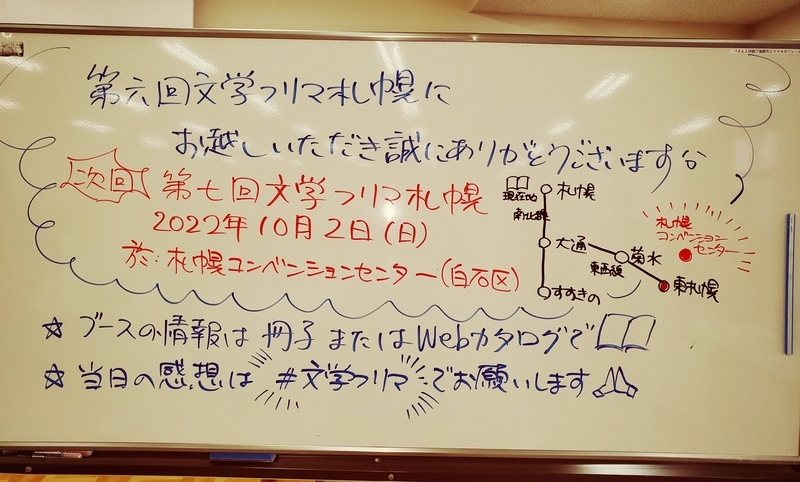 第六回文学フリマ札幌に
お越しいただき誠にありがとうございます
次回 第七回文学フリマ札幌
2022年10月2日(日)
於:札幌コンベンションセンター(白石区)
現在地
札幌
南北線
大通
すすきの
東西線
菊水
東札幌
札幌
コンベンション
センター
☆ ブースの情報は 冊子またはWebカタログで
☆ 当日の感想は #文学フリマ でお願いします